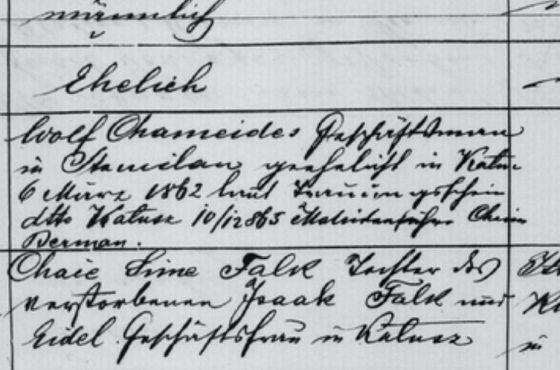 männlich
Ehelich
Wolf Chameides Geschäftsmann
in Stanislau geehelicht in Kalusz
6 März 1862 laut Trauungsschein
dtto Kalusz 10/12 865 Matrikenführer Chaim
Berman.
Chaie Sime Falk Tochter des
verstorbenen Isaak Falk und
Eidel Geschäftsfrau in Kalusz